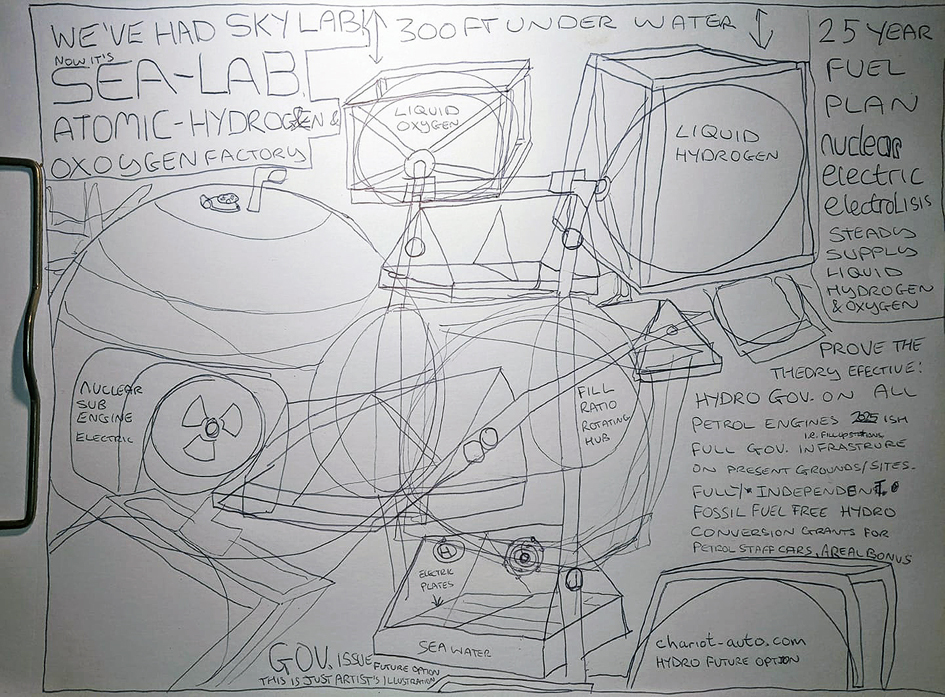 WE'VE HAD SKYLAB
NOW IT'S
SEA-LAB.
ATOMIC-HYDROGEN &
OXOYGEN FACTORY
300FT UNDER WATER
LIQUID
OXYGEN
LIQUID
HYDROGEN
25 YEAR
FUEL
PLAN
nuclear
electric
electrolisis
STEADY
SUPPLY
LIQUID
HYDROGEN
& OXYGEN
PROVE THE
THEORY EFECTIVE:
HYDRO GOV. ON ALL
PETROL ENGINES 2025 ISH
I.E. FILLUPSTATIONS
FULL GOV. INFRASTRURE
ON PRESENT GROUNDS/SITES.
FULLY INDEPENDENT.
FOSSIL FUEL FREE HYDRO
CONVERSION GRANTS FOR
PETROL STAFF CARS, AREAL BONUS
NUCLEAR
SUB
ENGINE
ELECTRIC
FILL
RATIO
ROTATING
HUB
ELECTRIC
PLATES
SEA WATER
GOV. ISSUE
FUTURE OPTION
THIS IS JUST ARTIST'S ILLUSTRATION
chariot-auto.com
HYDRO FUTURE OPTION